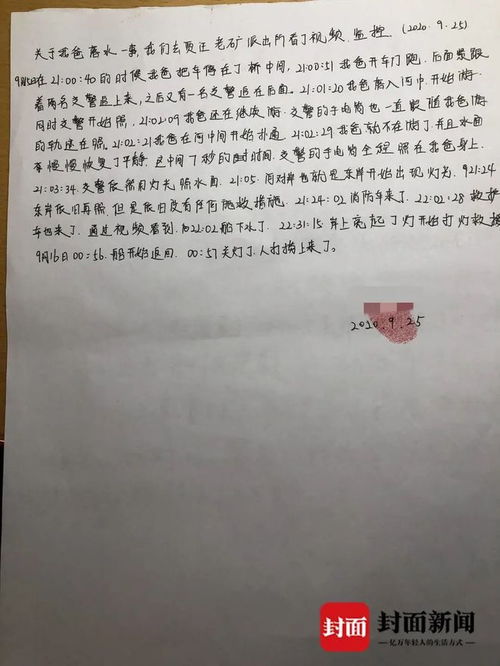 关于我爸落水一事,我们去贾汪老矿派出所看了视频,监控.(2020.9.25)
9月15日在21:00:40的时候我爸把车停在了桥中间,21:00:51我爸开车门跑,后面紧跟
着两名交警追上来,之后又有一名交警追在后面。21:01:20我爸落入河中,开始游.
同时交警开始照,21:02:09我爸还在继续游.交警的手电筒也一直跟随我爸游
的轨迹在照.21:02:21我爸在河中间开始扑通.21:02:29我爸就不在游了并且水面
慢慢恢复了平静.这中间7秒的时间,交警的手电筒全程照在我爸身上.
21:03:34.交警依照用灯光照水面.21:05.河对岸也就是东岸开始出现灯光.
东岸依旧再照.但是依旧没有任何施救措施.21:24:02消防车来了.22:02:28救护
车也来了.通过视频看到.22:02船下水了.22:31:15岸上亮起了灯开始打灯救援
9月16日00:56.船开始返回.00:57关灯了.人打捞上来了。
2020.9.25
封面 封面新闻
亿万年轻人的生活方式